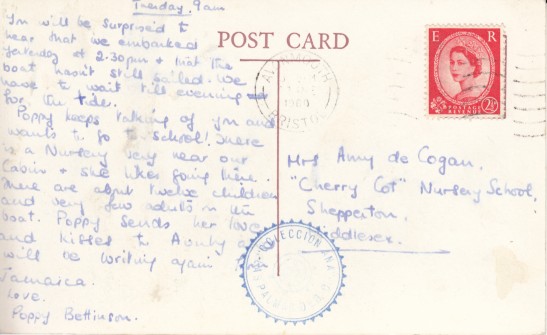 Tuesday. 9am
You will be surprised to
hear that we embarked
yesterday at 2.30pm & that the
boat hasn't still sailed. We
have to wait till evening
for the tide.
Poppy keeps talking of you and
wants to go to school! There
is a Nursery very near our
Cabin & she likes going there.
There are about twelve children
and very few adults on the
boat. Poppy sends her love
and kisses to Aunty &
will be writing again
Jamaica.
Love.
Poppy Bettinson.
POST CARD
AVONMOUTH
1960
BRISTOL
E R
POSTAGE
REVENUE
2½D
Mrs Amy de Cogan.
"Cherry Cot" Nursery School,
Shepperton,
Middlesex.
COLECCION ANA